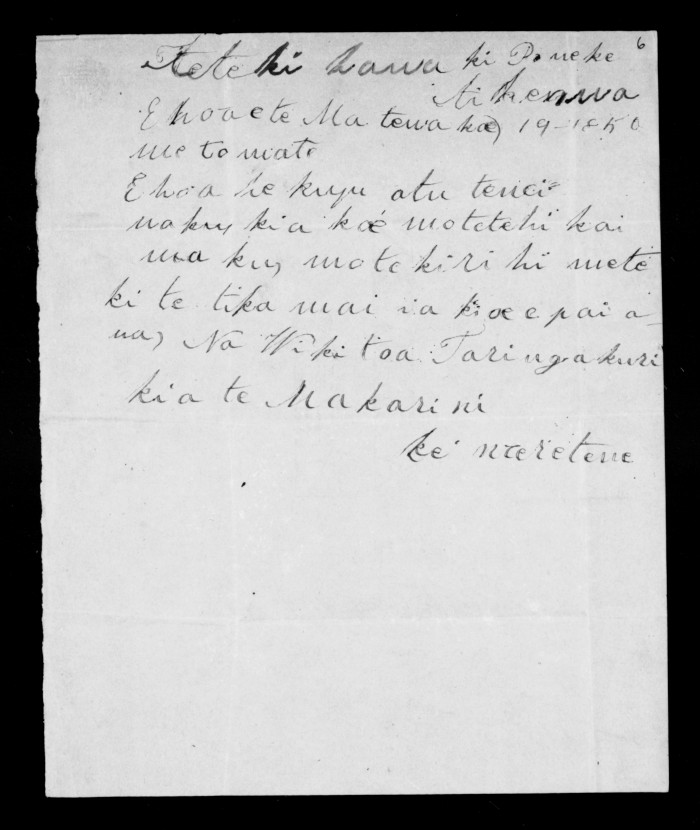 6
ki hawa ki Poneke
E hoa e te Ma tewa ka 19-1850
me to mate
E hoa he kupu atu tenei
naku kia koe mo tetehi kai
maku mo te kirihi mete
ki te tika mai ia koe e pai a-
na Na Wikitoa Taringakuri
kia te Makarini
kei